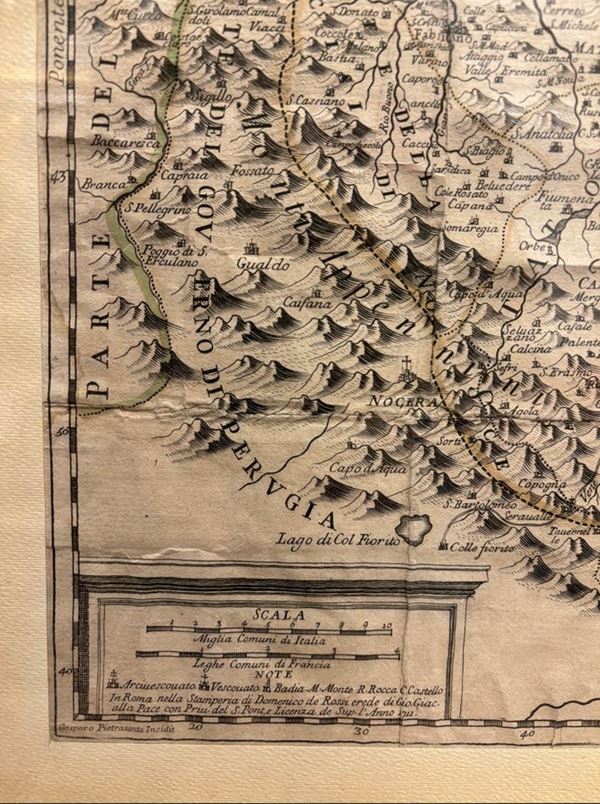 Ponente
PARTE DEL
GOVERNO DI PERVGIA
Monti Appennini
S. Girolamo Camaldoli
Viacei
S. Donato
Coccole
Melano
Bastia
Fabriano
Vargno
Colle
Capillini
Cerreto
S. Michele
S. Mad.
Attiggno
Valle
Eremita
Collamato
Sigillo
S. Cassiano
Rio Bueno
Cancelle
S. Anatolia
Campodiecoli
S. Biagio
Baccaresca
43
Branca
Capraia
Fossato
Campo d'Onico
Belvedere
Cole Rosato
Càpana
Fiumenata
S. Pellegrino
Somaregia
Orbe
Poggio di S.
Erculano
Gualdo
Caifana
Capo d'Aqua
Seluazzano
Calcina
Casale
Palente
Sefri
S. Erasmo
NOCERA
Agola
50
Sorti
Capo d'Aqua
Copogna
S. Bartolomeo
Seraualle
Tauernelle
Lago di Col Fiorito
Colle fiorito
SCALA
1 2 3 4 5 6 7 8 9 10
Miglia Comuni di Italia
1 2 3 4
Leghe Comuni di Francia
NOTE
Arciuescouato Vescouato Badia M. Monte R. Rocca C. Castello
In Roma nella Stamperia di Domenico de Rossi erede di Gio. Giac.
alla Pace con Priu. del S. Pont. e Licenza de Sup. l'Anno 1711
40
Gasparo Pietrasanta Incidit
20 30 40